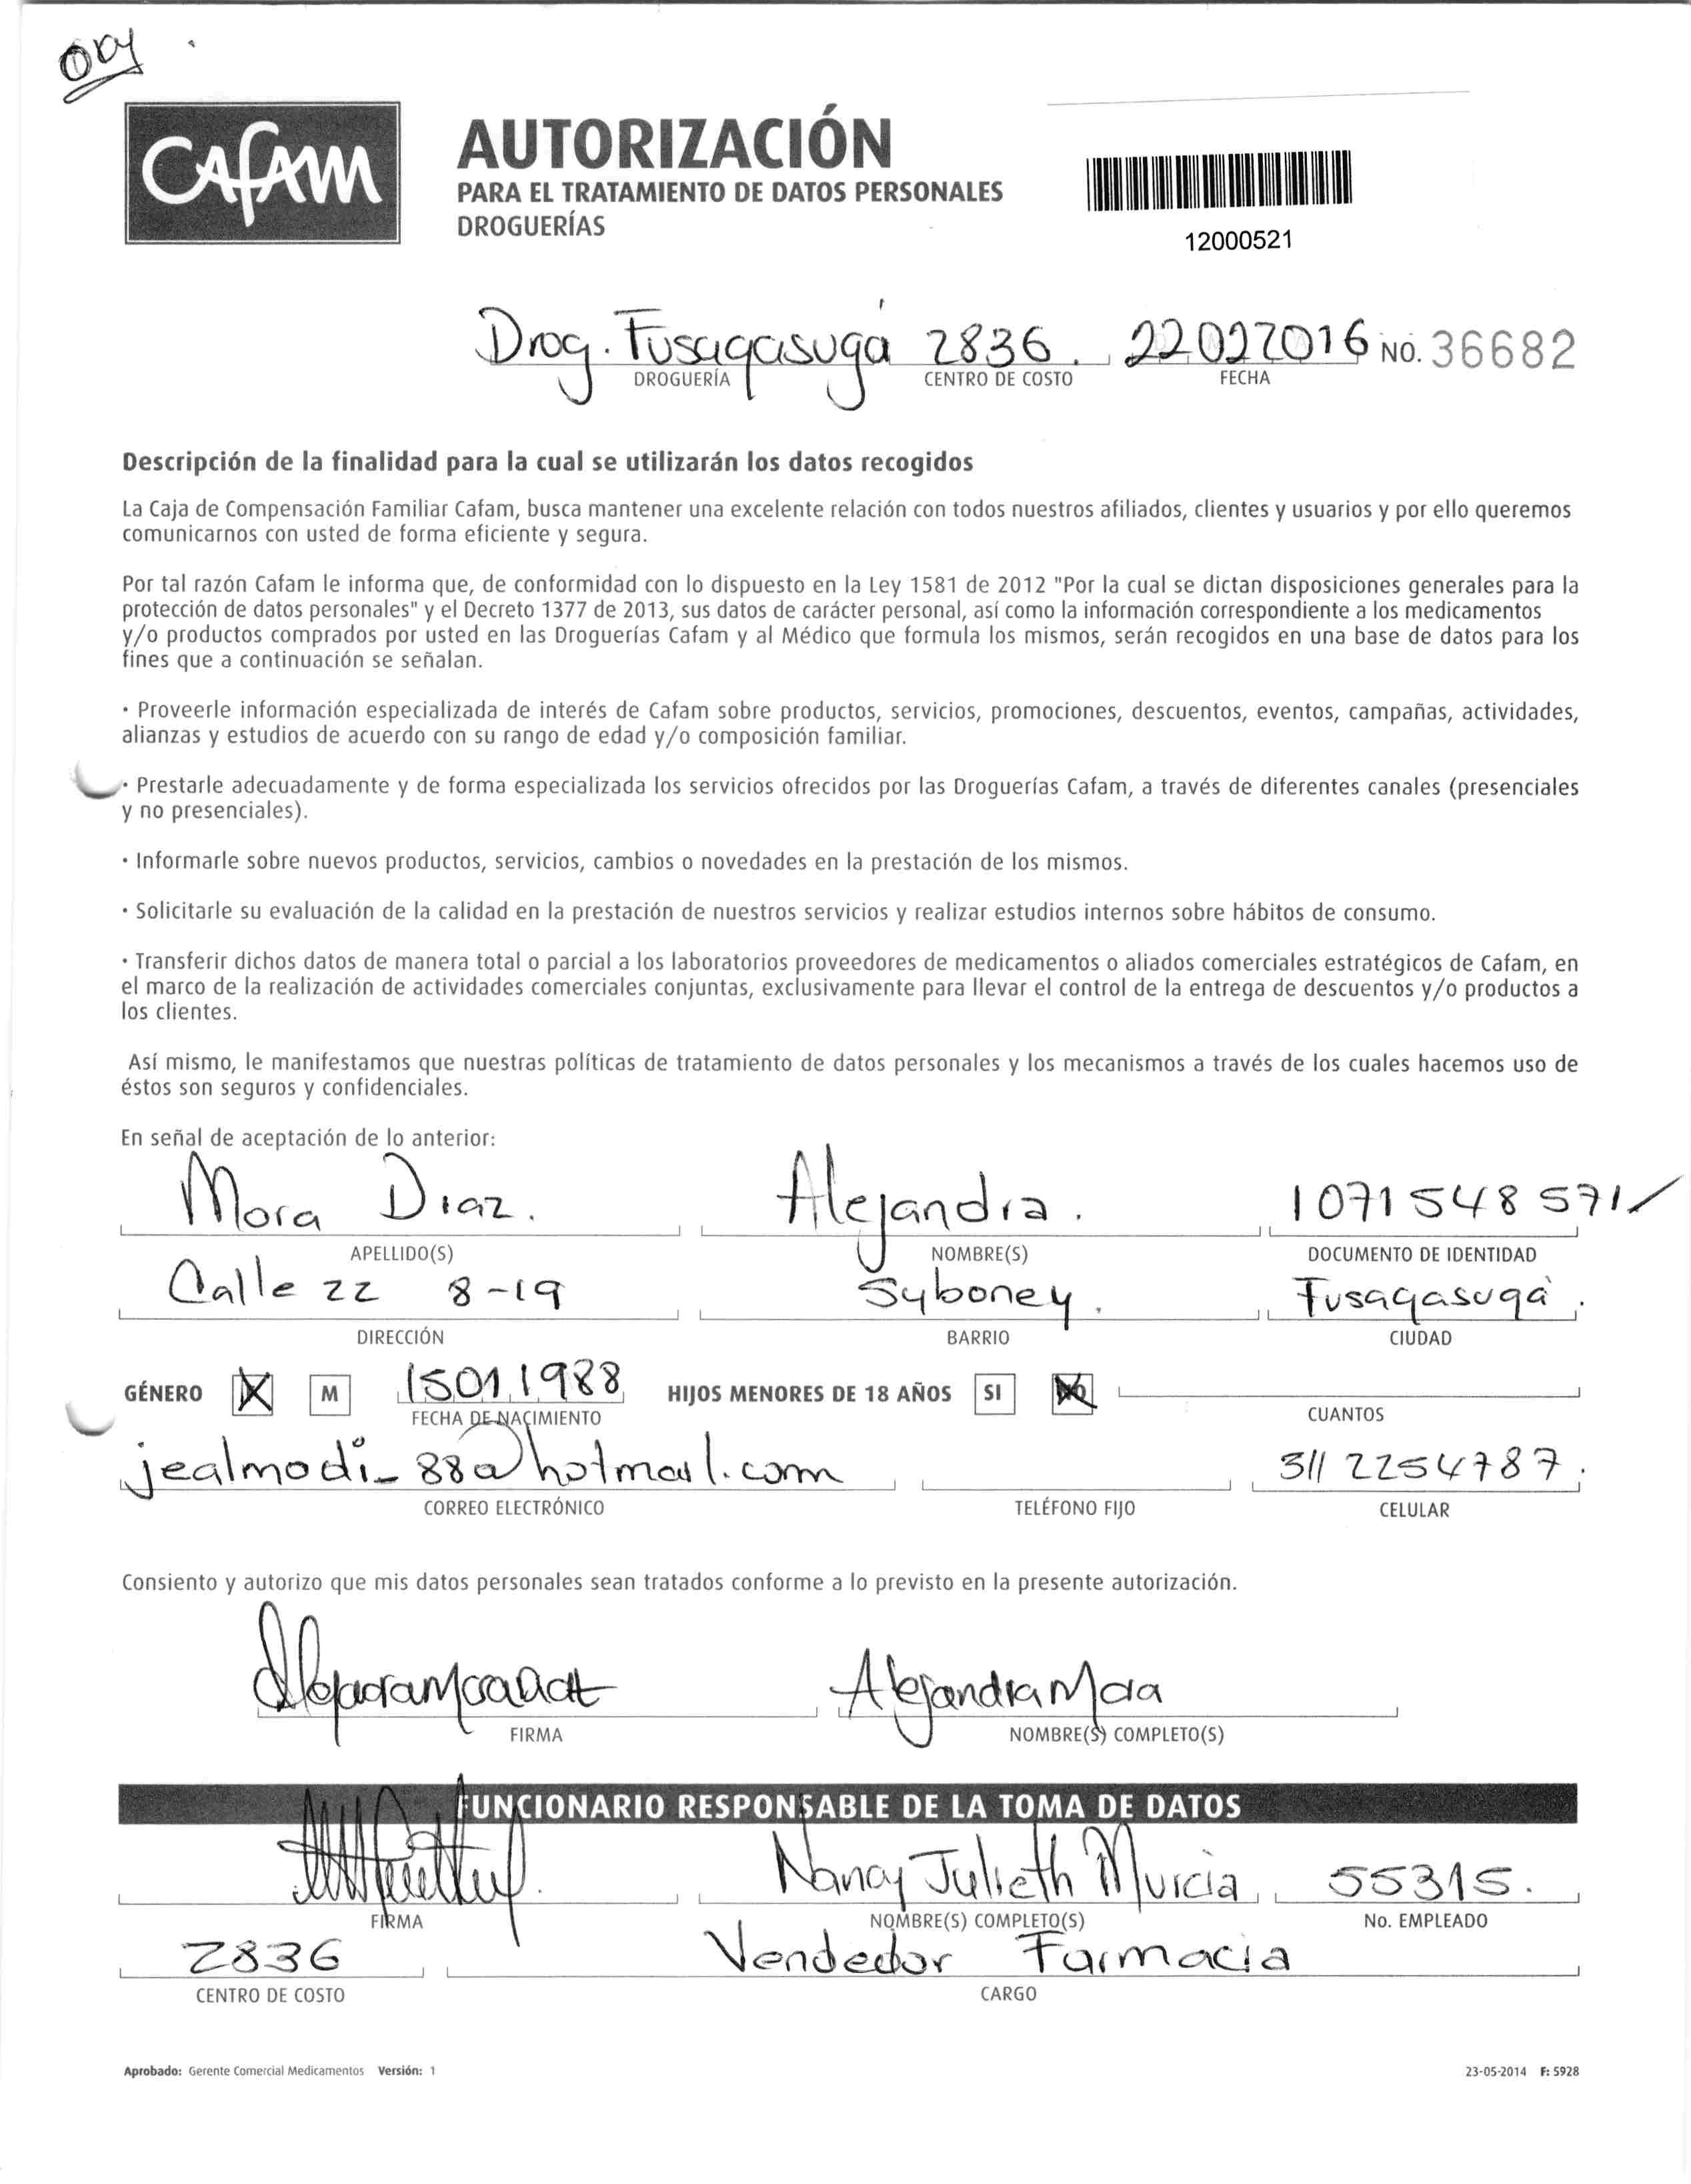 CAFAM
AUTORIZACIÓN
PARA EL TRATAMIENTO DE DATOS PERSONALES
DROGUERÍAS
12000521
Drog. Fusagasugá 2836. 22022016 NO. 36682
DROGUERÍA CENTRO DE COSTO FECHA
Descripción de la finalidad para la cual se utilizarán los datos recogidos
La Caja de Compensación Familiar Cafam, busca mantener una excelente relación con todos nuestros afiliados, clientes y usuarios y por ello queremos
comunicarnos con usted de forma eficiente y segura.
Por tal razón Cafam le informa que, de conformidad con lo dispuesto en la Ley 1581 de 2012 "Por la cual se dictan disposiciones generales para la
protección de datos personales" y el Decreto 1377 de 2013, sus datos de carácter personal, así como la información correspondiente a los medicamentos
y/o productos comprados por usted en las Droguerías Cafam y al Médico que formula los mismos, serán recogidos en una base de datos para los
fines que a continuación se señalan.
· Proveerle información especializada de interés de Cafam sobre productos, servicios, promociones, descuentos, eventos, campañas, actividades,
alianzas y estudios de acuerdo con su rango de edad y/o composición familiar.
· Prestarle adecuadamente y de forma especializada los servicios ofrecidos por las Droguerías Cafam, a través de diferentes canales (presenciales
y no presenciales).
· Informarle sobre nuevos productos, servicios, cambios o novedades en la prestación de los mismos.
· Solicitarle su evaluación de la calidad en la prestación de nuestros servicios y realizar estudios internos sobre hábitos de consumo.
· Transferir dichos datos de manera total o parcial a los laboratorios proveedores de medicamentos o aliados comerciales estratégicos de Cafam, en
el marco de la realización de actividades comerciales conjuntas, exclusivamente para llevar el control de la entrega de descuentos y/o productos a
los clientes.
Así mismo, le manifestamos que nuestras políticas de tratamiento de datos personales y los mecanismos a través de los cuales hacemos uso de
éstos son seguros y confidenciales.
En señal de aceptación de lo anterior:
Mora Diaz. Alejandra. 1071548571/
APELLIDO(S) NOMBRE(S) DOCUMENTO DE IDENTIDAD
Calle 22 8-19 Syboney. Fusagasugá.
DIRECCIÓN BARRIO CIUDAD
GÉNERO M 15011988 HIJOS MENORES DE 18 AÑOS SI NO
FECHA DE NACIMIENTO CUANTOS
jealmodi_88@hotmail.com 311 2254787.
CORREO ELECTRÓNICO TELÉFONO FIJO CELULAR
Consiento y autorizo que mis datos personales sean tratados conforme a lo previsto en la presente autorización.
Alejandra Mora
FIRMA NOMBRE(S) COMPLETO(S)
FUNCIONARIO RESPONSABLE DE LA TOMA DE DATOS
Nancy Julieth Murcia 55315.
FIRMA NOMBRE(S) COMPLETO(S) No. EMPLEADO
2836 Vendedor Farmacia
CENTRO DE COSTO CARGO
Aprobado: Gerente Comercial Medicamentos Versión: 1 23-05-2014 F: 5928